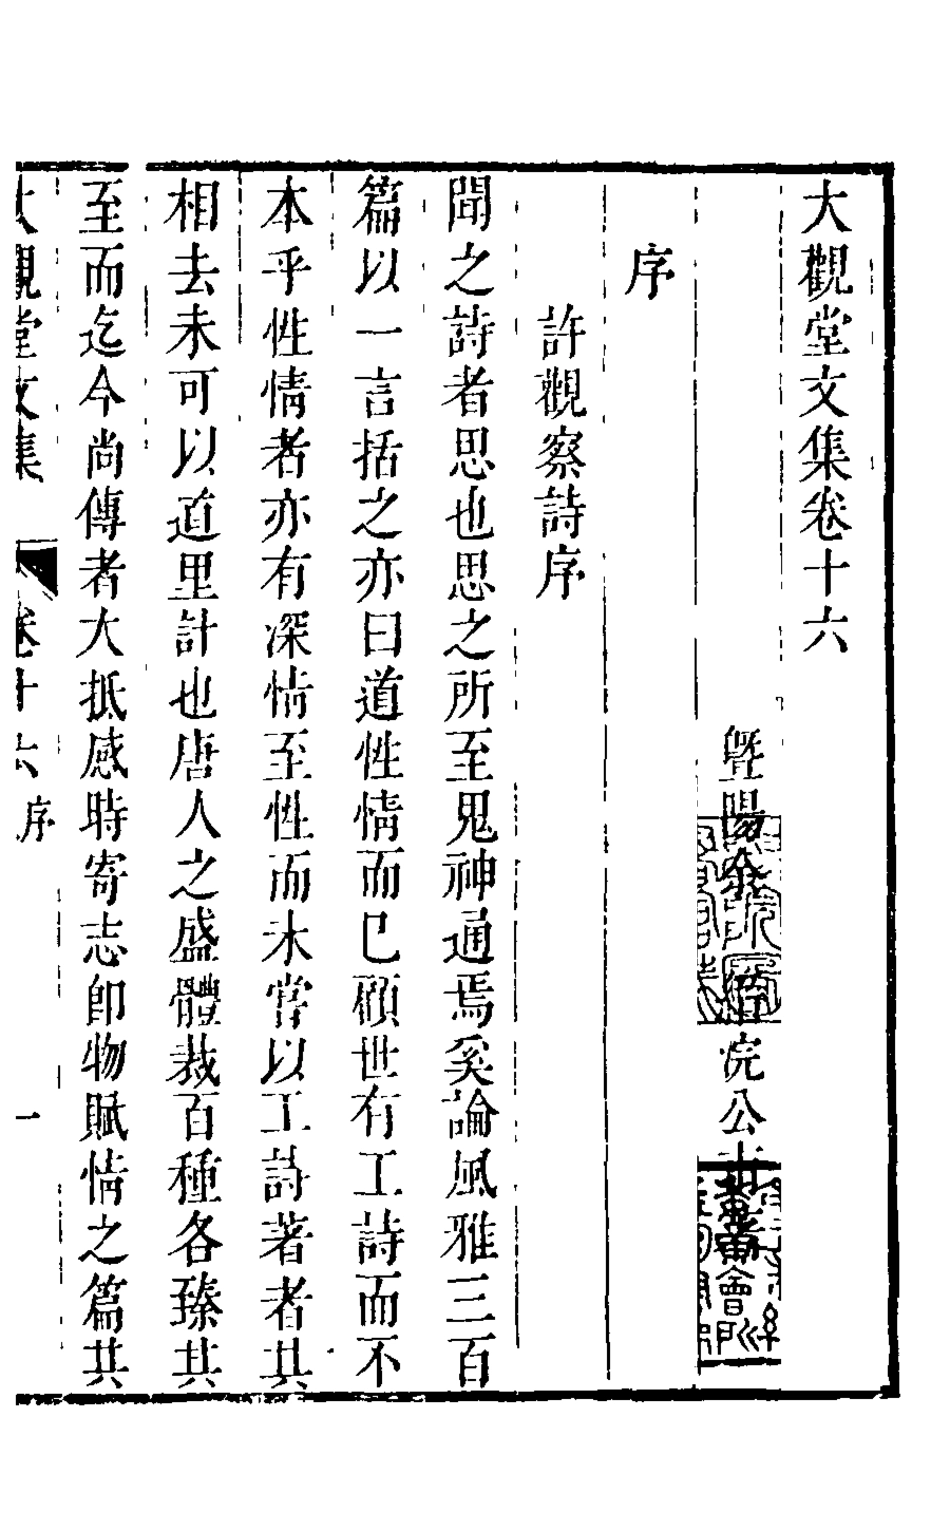 大觀堂文集卷十六
暨陽余 縉浣公
序
許觀察詩序
聞之詩者思也思之所至鬼神通焉奚論風雅三百
篇以一言括之亦曰道性情而已顧世有工詩而不
本乎性情者亦有深情至性而未嘗以工詩著者其
相去未可以道里計也唐人之盛體裁百種各臻其
至而迄今尚傳者大抵感時寄志即物賦情之篇其
大觀堂文集 卷十六 序 一